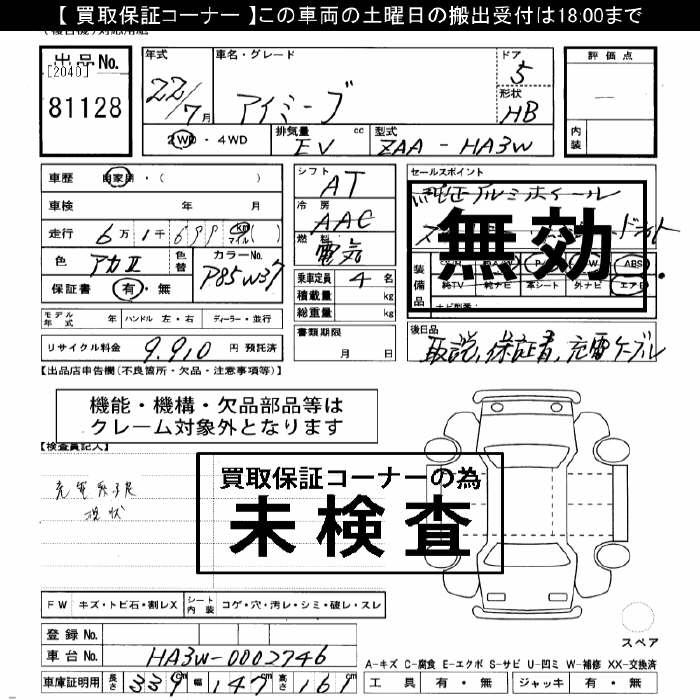 【 買取保証コーナー 】この車両の土曜日の搬出受付は18:00まで
出品No.
[2040]
81128
年式
22/7月
車名・グレード
アイミーブ
ドア
5
形状
HB
評価点
内装
2WD・4WD
排気量 cc
EV
型式
ZAA - HA3W
車歴 自家用・( )
車検 年 月
走行 6万1千699 km マイル ( )
色 アカⅡ
色替
カラーNo.
P85W37
保証書 有・無
シフト AT
冷房 AAC
燃料 電気
乗車定員 4 名
積載量 kg
総重量 kg
セールスポイント
純正アルミホイール
無効
装備品
ABS
純TV 純ナビ 革シート 外ナビ エアB
モデル年式 年 ハンドル 左・右 ディーラー・並行
書類期限
月 日
リサイクル料金 9,910 円 預託済
後日品
取説,保証書,充電ケーブル
【出品店申告欄(不良箇所・欠品・注意事項等)】
機能・機構・欠品部品等は
クレーム対象外となります
【検査員記入】
現状
買取保証コーナーの為
未検査
FW キズ・トビ石・割レX シート内装 コゲ・穴・汚レ・シミ・破レ・スレ
スペア
登録No.
車台No. HA3W-0002746
A-キズ C-腐食 E-エクボ S-サビ U-凹ミ W-補修 XX-交換済
車庫証明用 長さ 339 cm 幅 147 cm 高さ 161
工具 有・無 ジャッキ 有・無